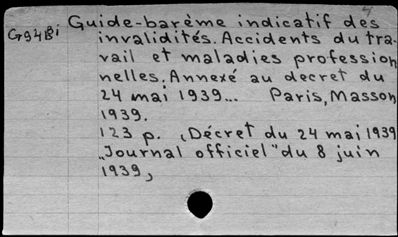 Guide-barème indicatif des
G94Bi invalidités. Accidents du tra-
vail et maladies profession
nelles. Annexé au decret du
24 mai 1939... Paris, Masson
1939.
123 p. (Décret du 24 mai 1939
"Journal officiel" du 8 juin
1939)